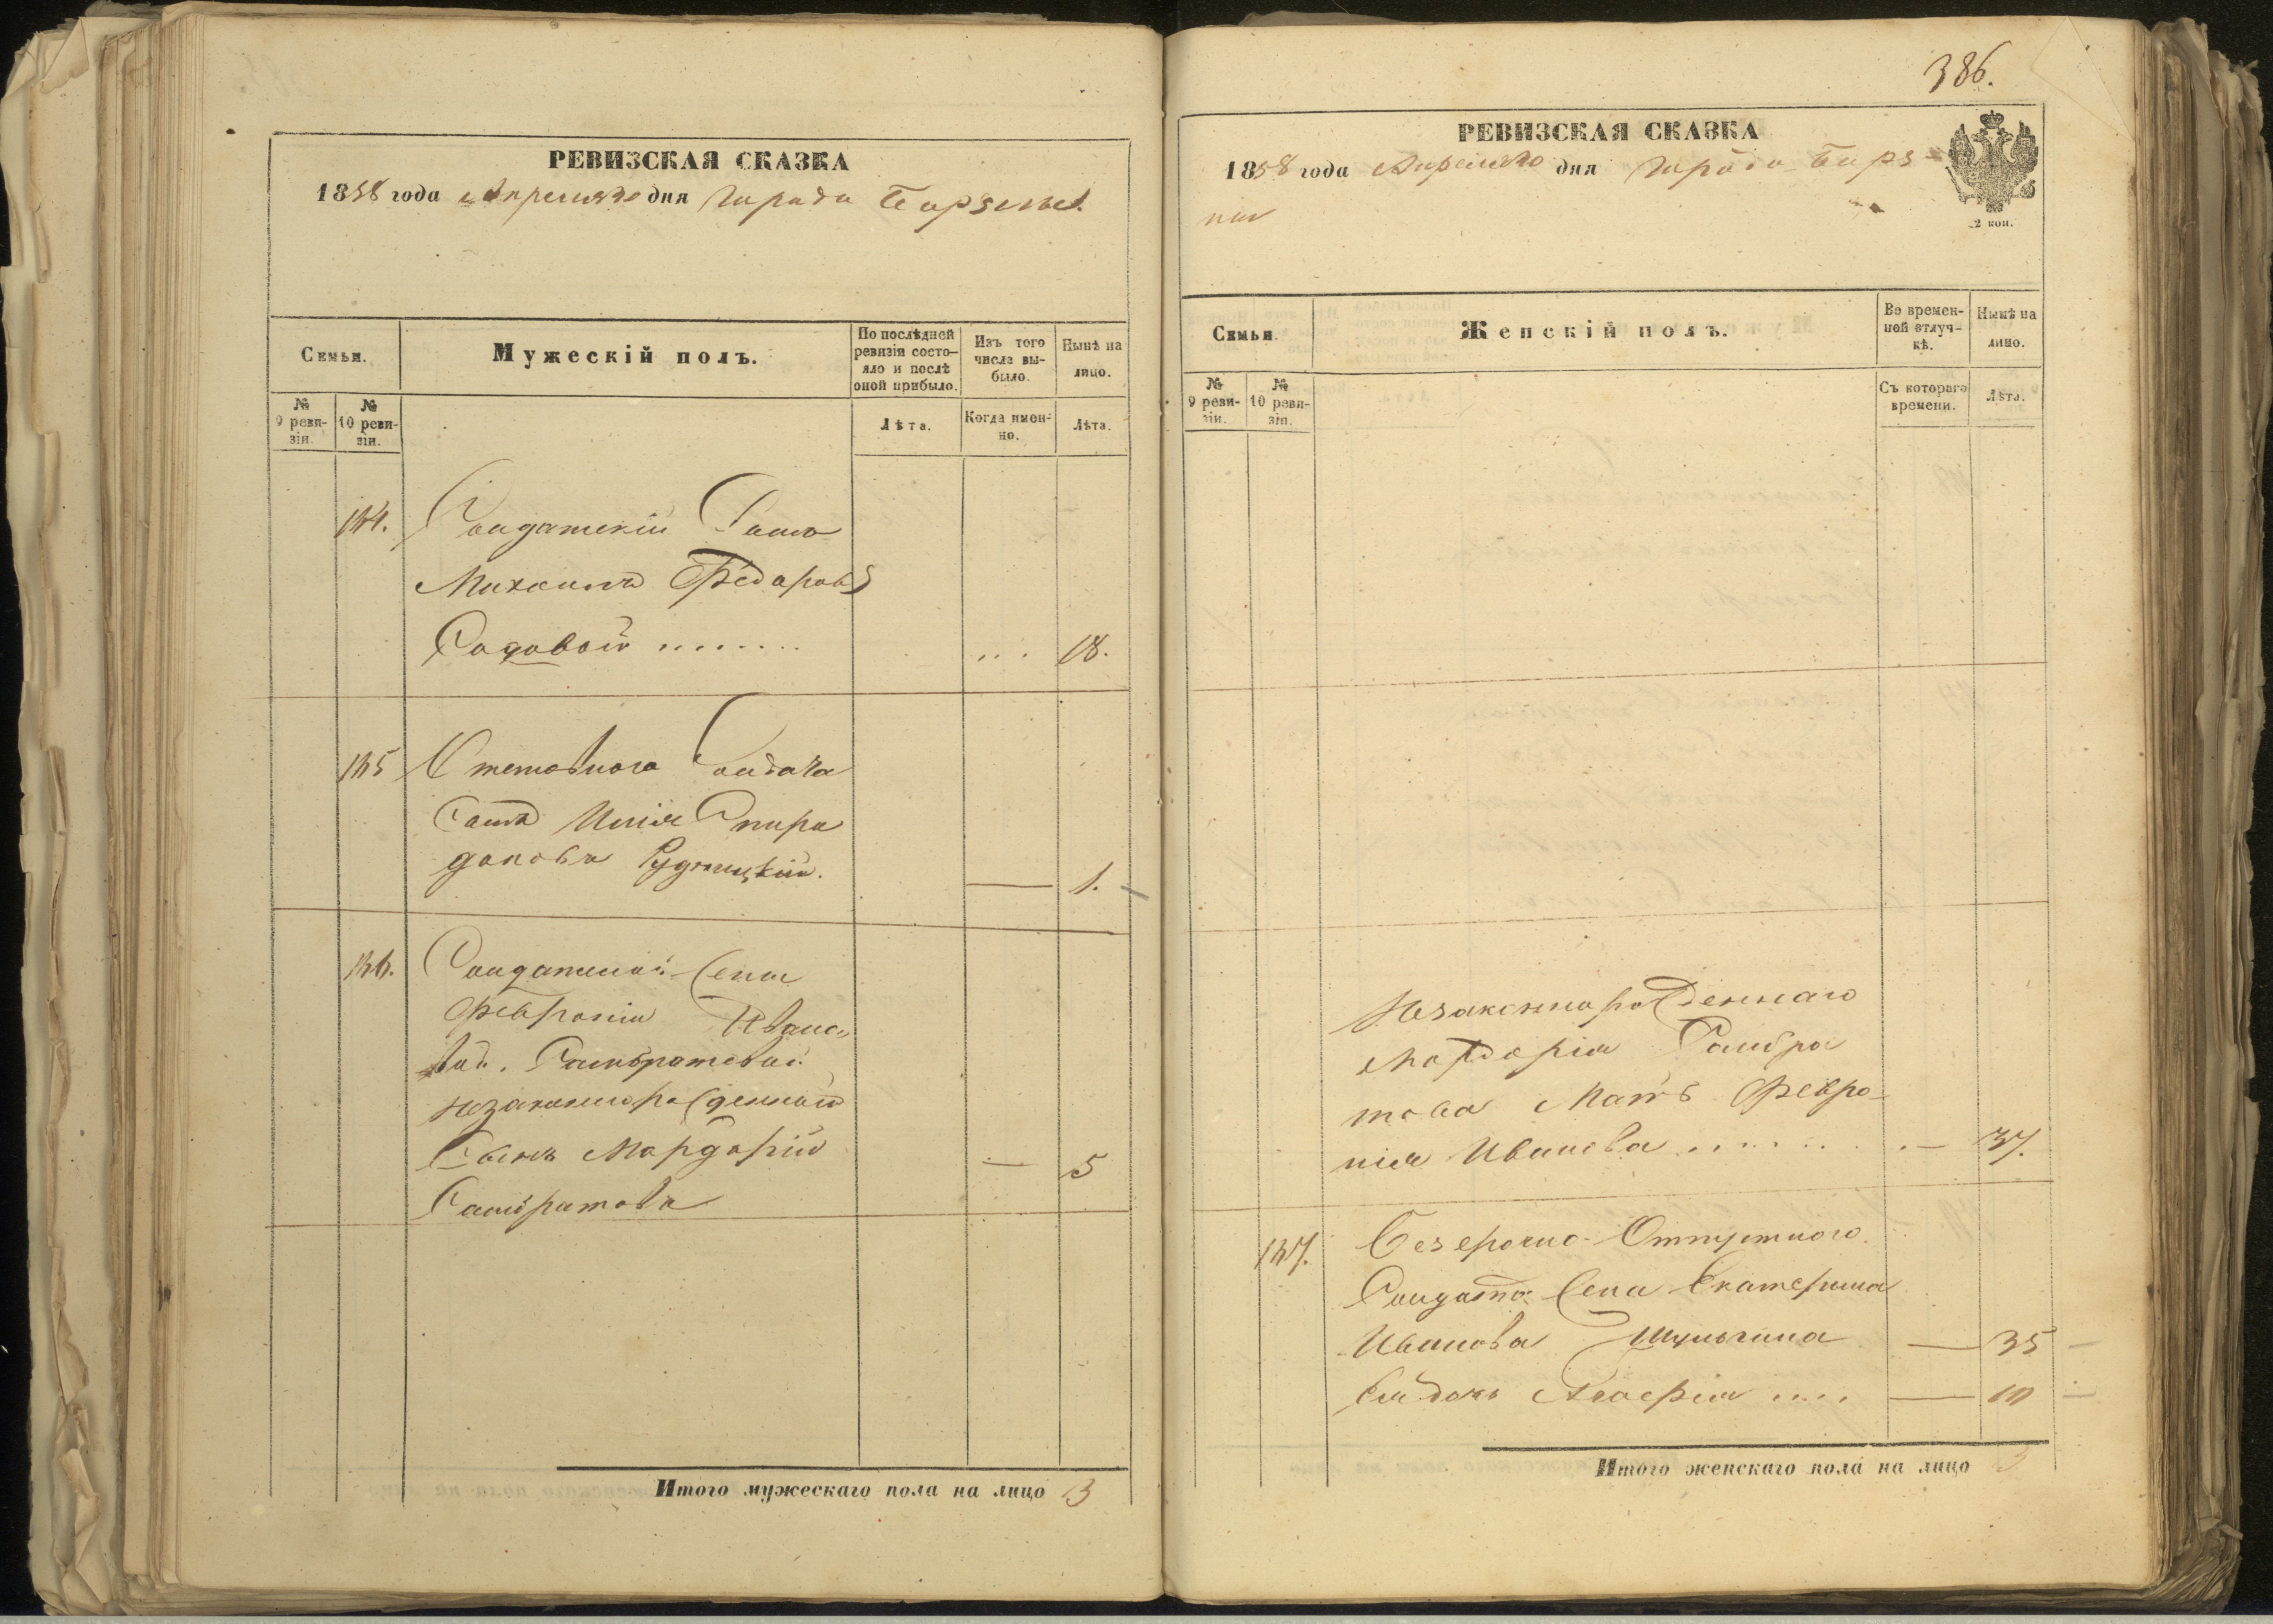 РЕВИЗСКАЯ СКАЗКА
1858 года Апреля дня Города Бирзулы
Семьи.
Мужескій полъ.
По послѣдней ревизіи состо-
яло и послѣ
оной прибыло.
Изъ того
числа вы-
было.
Нынѣ на
лицо.
№
9 реви-
зіи.
№
10 реви-
зіи.
Лѣта.
Когда имен-
но.
Лѣта.
144.
Солдатскій Сынъ
Михаилъ Федоровъ
Садовой ....... ... 18.
145
Отставного Солдата
Сынъ Илія Спири
доновъ Рудницкій. — 1.
146.
Солдатской Жены
Февроніи Ивано-
вой
незаконнорожденный
Сынъ Мардарій — 5
РЕВИЗСКАЯ СКАЗКА
386.
1858 года Апреля дня Города
2 коп.
Семьи.
Женскій полъ.
Во времен-
ной отлуч-
кѣ.
Нынѣ на
лицо.
№
9 реви-
зіи.
№
10 реви-
зіи.
Съ котораго
времени.
Лѣта.
Незаконнорожденнаго
Мардарія
Мать Февро-
нія Иванова ........ — 37.
147.
Безсрочно-Отпустного
Солдата Жена Екатерина
Иванова Шульгина — 35
Ея дочь .... — 10
Итого мужескаго пола на лицо 3
Итого женскаго пола на лицо 3